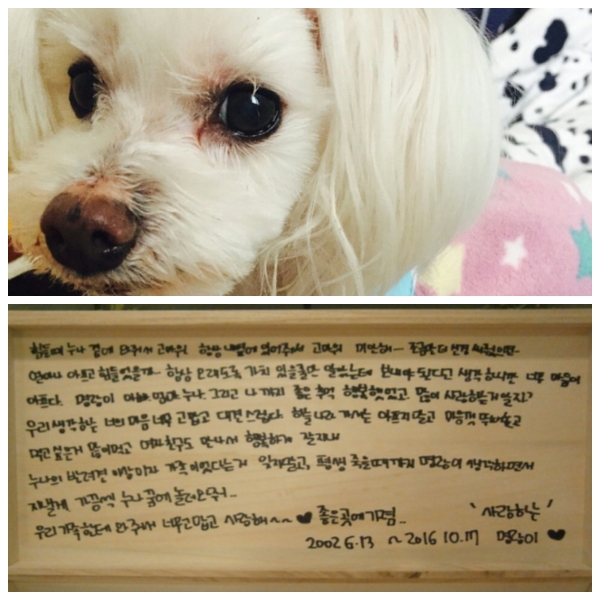 힘들때 누나 곁에 와줘서 고마워 항상 내옆에 있어주어서 고마워 미안해... 조금만 더 신경 써줬으면..
얼마나 아프고 힘들었을까.. 항상 오래도록 같이 있을줄만 알았는데 보내야 된다고 생각하니깐 너무 마음이
아프다. 명랑이 아빠, 엄마, 누나 그리고 나 까지 좋은 추억 행복했었고 많이 사랑하는거 알지?
우리 생각하는 너의 마음 너무 고맙고 대견스럽다. 하늘나라 가서는 아프지말고 마음껏 뛰어놀고
먹고 싶은거 많이먹고 여자친구도 만나서 행복하게 잘지내
누나의 반려견 이상이자 가족이었다는거 잊지말고, 평생 죽을때까지 명랑이 생각하면서
지낼게 가끔씩 누나 꿈에 놀러와줘...
우리가족한테 와주어서 너무 고맙고 사랑해~~ ♥ 좋은곳에가렴.. '사랑하는'
2002 6.13 ~2016 10.17 명랑이 ♥